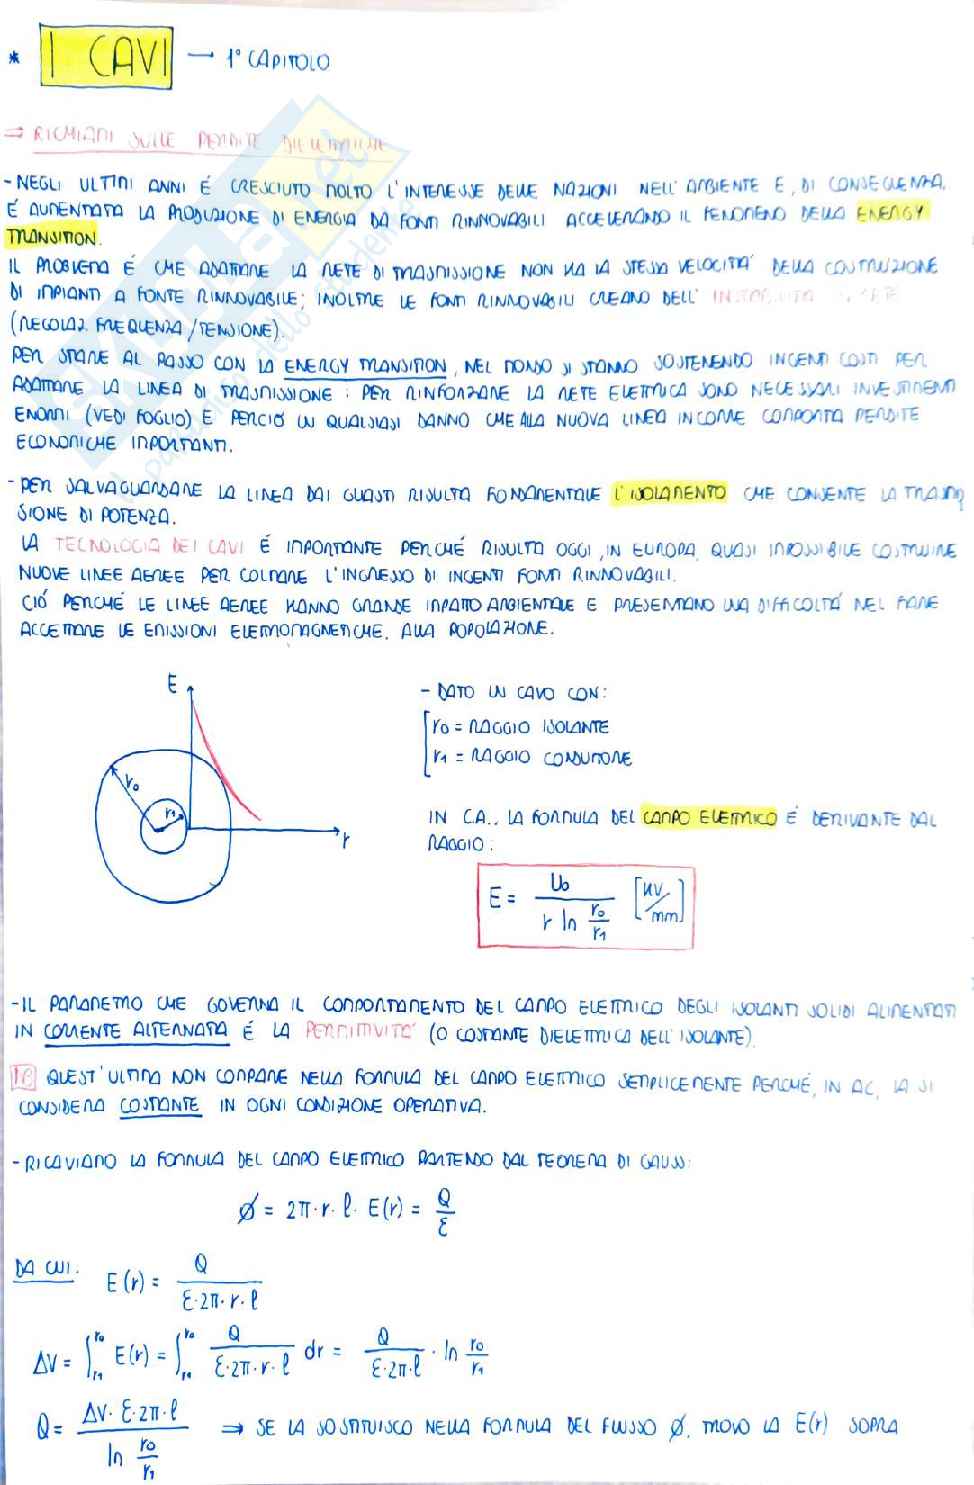 * I CAVI → 1° CAPITOLO
⇒ RICHIAMI SULLE PERDITE DIELETTRICHE
- NEGLI ULTIMI ANNI É CRESCIUTO MOLTO L'INTERESSE DELLE NAZIONI NELL'AMBIENTE E, DI CONSEGUENZA,
É AUMENTATA LA PRODUZIONE DI ENERGIA DA FONTI RINNOVABILI ACCELERANDO IL FENOMENO DELLA ENERGY
TRANSITION.
IL PROBLEMA É CHE ADATTARE LA RETE DI TRASMISSIONE NON HA LA STESSA VELOCITÁ DELLA COSTRUZIONE
DI IMPIANTI A FONTE RINNOVABILE; INOLTRE LE FONTI RINNOVABILI CREANO DELL'INSTABILITÁ RETE
(REGOLAZ. FREQUENZA/TENSIONE).
PER STARE AL PASSO CON LA ENERGY TRANSITION, NEL MONDO SI STANNO SOSTENENDO INGENTI COSTI PER
ADATTARE LA LINEA DI TRASMISSIONE: PER RINFORZARE LA RETE ELETTRICA SONO NECESSARI INVESTIMENTI
ENORMI (VEDI FOGLIO) E PERCIÓ UN QUALSIASI DANNO CHE ALLA NUOVA LINEA INCORRE COMPORTA PERDITE
ECONOMICHE IMPORTANTI.
- PER SALVAGUARDARE LA LINEA DAI GUASTI RISULTA FONDAMENTALE L'ISOLAMENTO CHE CONSENTE LA TRASMIS
SIONE DI POTENZA.
LA TECNOLOGIA DEI CAVI É IMPORTANTE PERCHÉ RISULTA OGGI, IN EUROPA, QUASI IMPOSSIBILE COSTRUIRE
NUOVE LINEE AEREE PER COLMARE L'INGRESSO DI INGENTI FONTI RINNOVABILI.
CIÓ PERCHÉ LE LINEE AEREE HANNO GRANDE IMPATTO AMBIENTALE E PRESENTANO UNA DIFFICOLTÁ NEL FARE
ACCETTARE LE EMISSIONI ELETTROMAGNETICHE, ALLA POPOLAZIONE.
E
r₀
r₁
r
- DATO UN CAVO CON:
r₀ = RAGGIO ISOLANTE
r₁ = RAGGIO CONDUTTORE
IN C.A., LA FORMULA DEL CAMPO ELETTRICO É DERIVANTE DAL
RAGGIO:
E = U₀ / (r ln r₀/r₁) [kV/mm]
- IL PARAMETRO CHE GOVERNA IL COMPORTAMENTO DEL CAMPO ELETTRICO DEGLI ISOLANTI SOLIDI ALIMENTATI
IN CORRENTE ALTERNATA É LA PERMITTIVITÁ (O COSTANTE DIELETTRICA DELL'ISOLANTE).
QUEST'ULTIMA NON COMPARE NELLA FORMULA DEL CAMPO ELETTRICO SEMPLICEMENTE PERCHÉ, IN AC, LA SI
CONSIDERA COSTANTE IN OGNI CONDIZIONE OPERATIVA.
- RICAVIAMO LA FORMULA DEL CAMPO ELETTRICO PARTENDO DAL TEOREMA DI GAUSS:
∅ = 2π · r · l · E(r) = Q/ε
DA CUI: E(r) = Q / (ε·2π·r·l)
ΔV = ∫_{r₁}^{r₀} E(r) = ∫_{r₁}^{r₀} Q / (ε·2π·r·l) dr = Q / (ε·2π·l) · ln r₀/r₁
Q = (ΔV · ε·2π·l) / (ln r₀/r₁) ⇒ SE LA SOSTITUISCO NELLA FORMULA DEL FLUSSO ∅, TROVO LA E(r) SOPRA